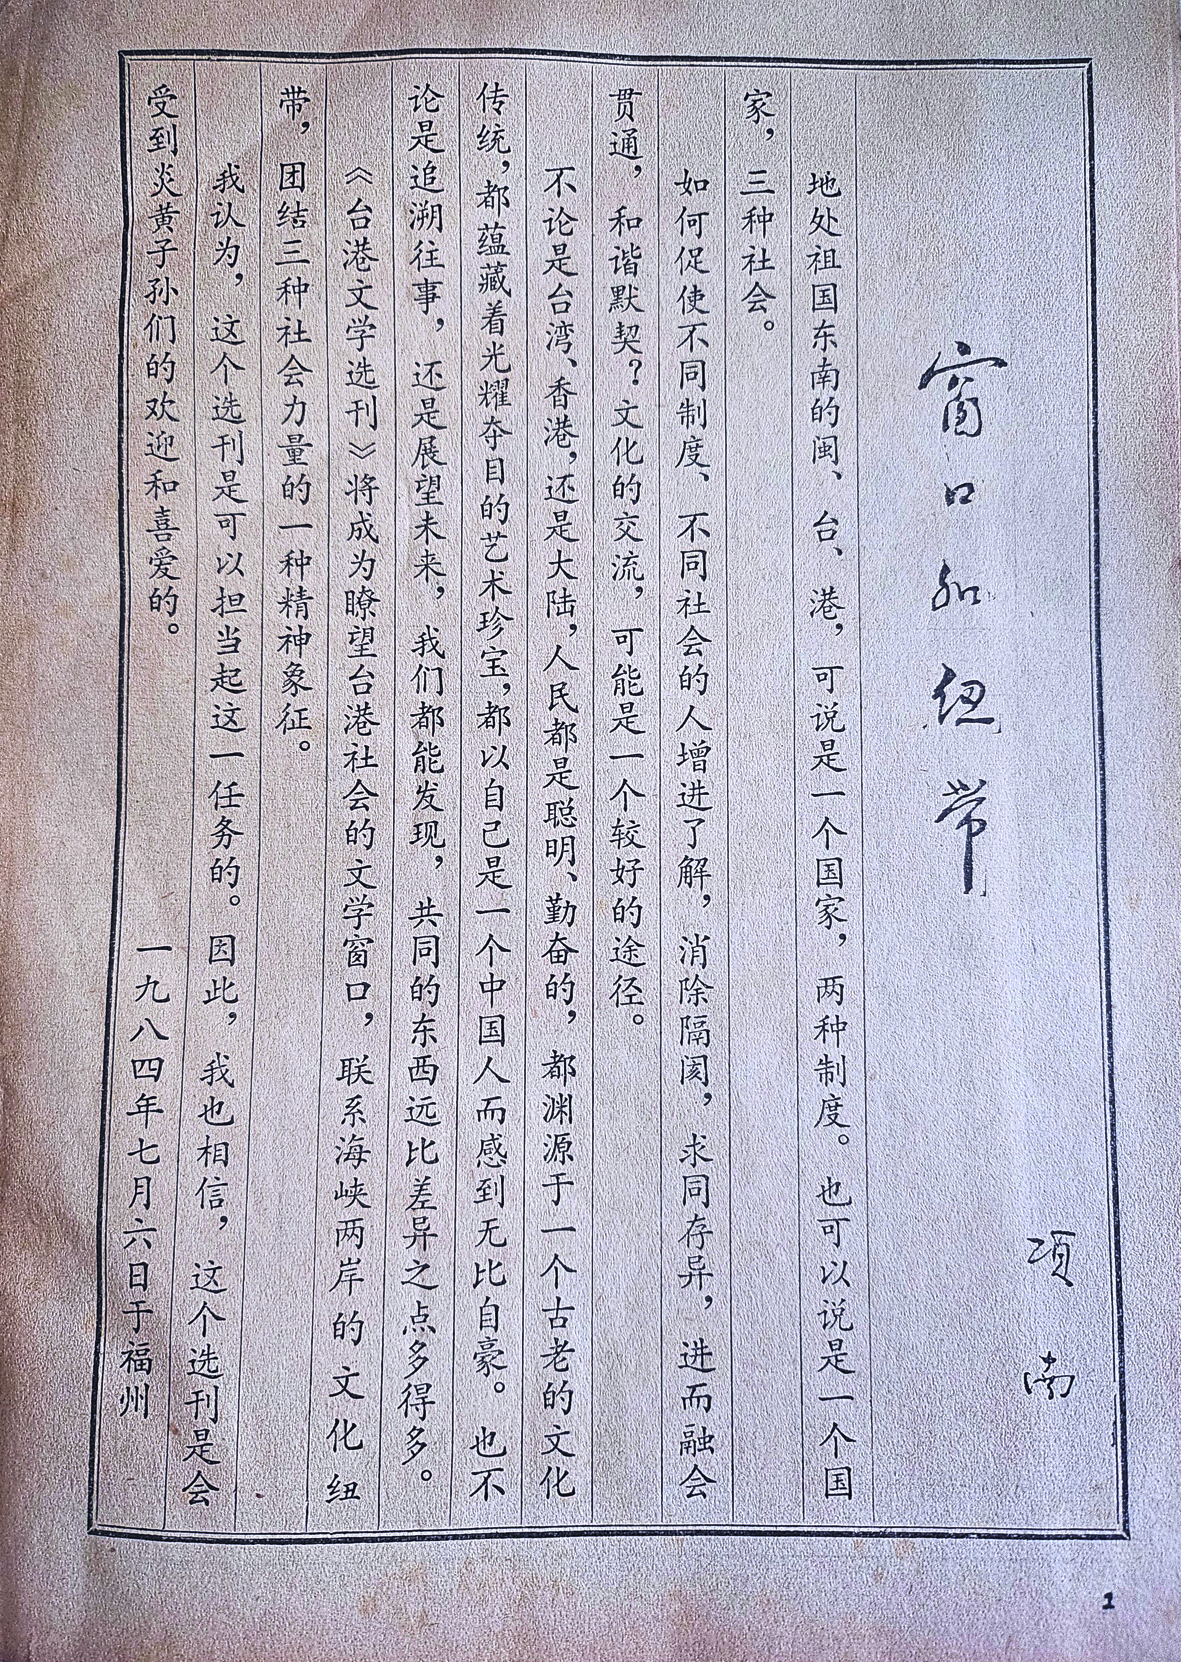 窗口和纽带
项南
地处祖国东南的闽、台、港，可说是一个国家，两种制度。也可以说是一个国
家，三种社会。
如何促使不同制度、不同社会的人增进了解，消除隔阂，求同存异，进而融会
贯通，和谐默契？文化的交流，可能是一个较好的途径。
不论是台湾、香港，还是大陆，人民都是聪明、勤奋的，都渊源于一个古老的文化
传统，都蕴藏着光耀夺目的艺术珍宝，都以自己是一个中国人而感到无比自豪。也不
论是追溯往事，还是展望未来，我们都能发现，共同的东西远比差异之点多得多。
《台港文学选刊》将成为瞭望台港社会的文学窗口，联系海峡两岸的文化纽
带，团结三种社会力量的一种精神象征。
我认为，这个选刊是可以担当起这一任务的。因此，我也相信，这个选刊是会
受到炎黄子孙们的欢迎和喜爱的。
一九八四年七月六日于福州
1